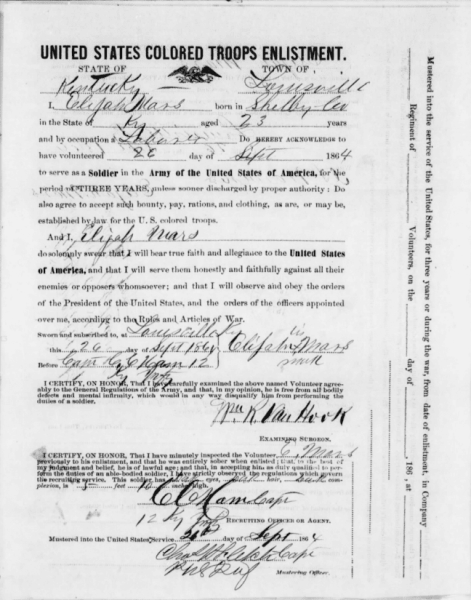 UNITED STATES COLORED TROOPS ENLISTMENT.
STATE OF TOWN OF
Kentucky Louisville
I, Elijah Mars born in Shelby Co
in the State of Ky aged 23 years
and by occupation a Laborer Do HEREBY ACKNOWLEDGE to
have volunteered 26 day of Sept 1864
to serve as a Soldier in the Army of the United States of America, for the
period of THREE YEARS, unless sooner discharged by proper authority: Do
also agree to accept such bounty, pay, rations, and clothing, as are, or may be,
established by law for the U.S. colored troops.
And I, Elijah Mars
do solemnly swear that I will bear true faith and allegiance to the United States
of America, and that I will serve them honestly and faithfully against all their
enemies or opposers whomsoever; and that I will observe and obey the orders
of the President of the United States, and the orders of the officers appointed
over me, according to the Rules and Articles of War.
Sworn and subscribed to, at Louisville Ky
this 26 day of Sept 1864 Elijah his Mars
Before mark
I CERTIFY, ON HONOR, That I have carefully examined the above named Volunteer agree-
ably to the General Regulations of the Army, and that, in my opinion, he is free from all bodily
defects and mental infirmity, which would in any way disqualify him from performing the
duties of a soldier.
Wm. R. Van Hook
EXAMINING SURGEON.
I CERTIFY, ON HONOR, That I have minutely inspected the Volunteer E. Mars
previously to his enlistment, and that he was entirely sober when enlisted; that, to the best of
my judgment and belief, he is of lawful age; and that, in accepting him as duly qualified to per-
form the duties of an able-bodied soldier, I have strictly observed the regulations which govern
the recruiting service. This soldier has eyes, hair, com-
plexion, is 5 feet inches high.
Capt
12 Ky
RECRUITING OFFICER OR AGENT.
Mustered into the United States Service 26 day of Sept 1864
Capt
Mustering Officer.
Mustered into the service of the United States, for three years or during the war, from date of enlistment, in Company
Regiment of Volunteers, on the day of , 186 , at